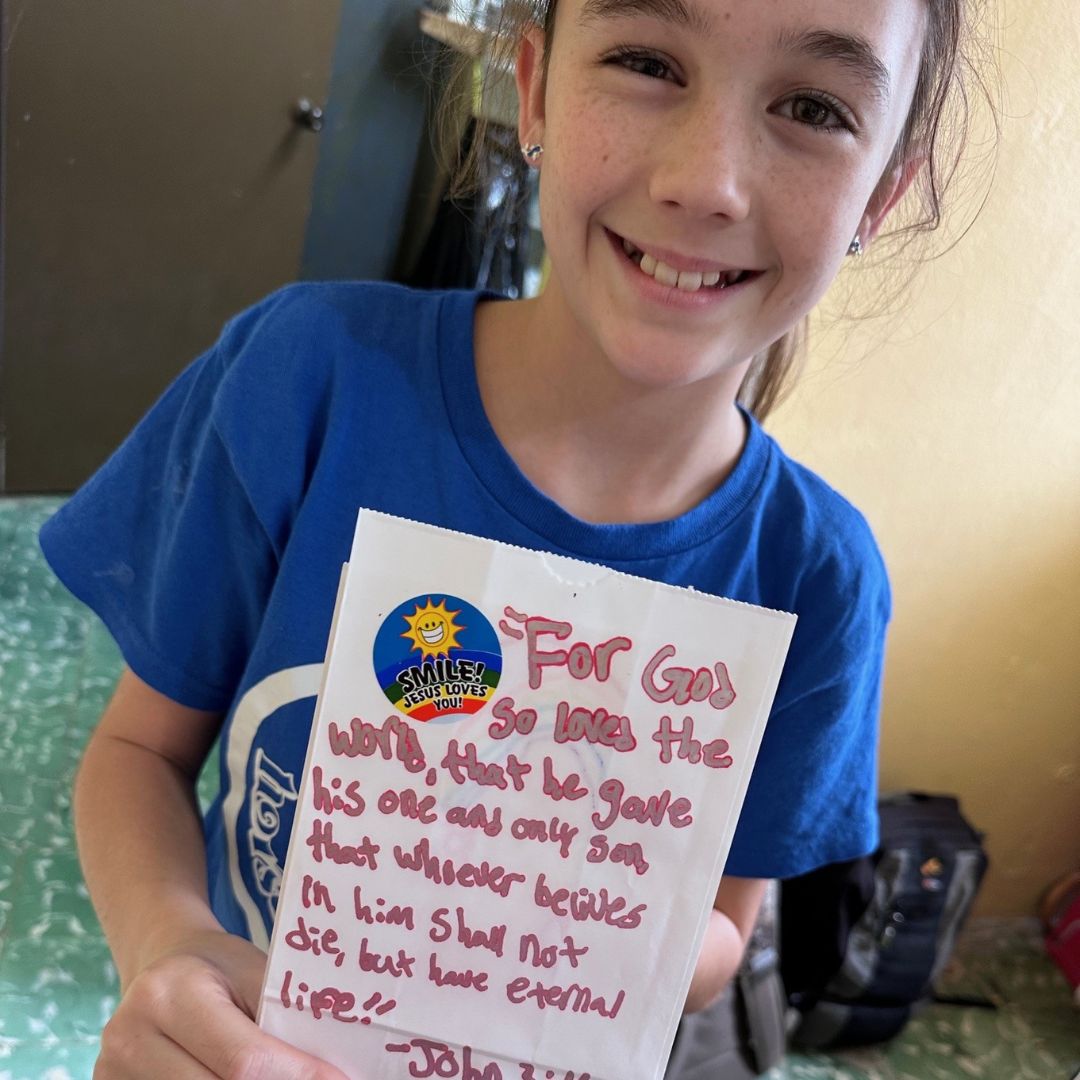 SMILE!
JESUS LOVES
YOU!
"For God
so loves the
world, that he gave
his one and only son,
that whoever belives
in him shall not
die, but have eternal
life!!
-John